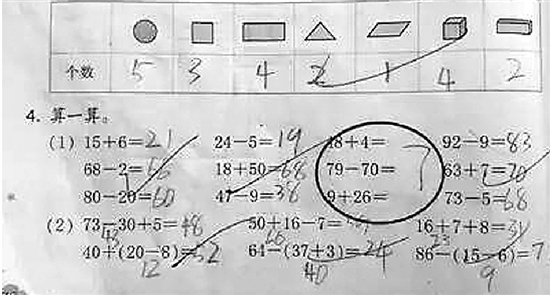 个数 5 3 4 2 1 4 2
4. 算一算。
(1) 15+6=21 24-5=19 48+4= 92-9=83
68-2=66 18+50=68 79-70= 63+7=70
?
80-20=60 47-9=38 9+26= 73-5=68
(2) 73-30+5=48 50+16-7= 16+7+8=31
43 66 23
40+(20-8)=52 64-(37+3)=24 86-(15-6)=7
12 40 9